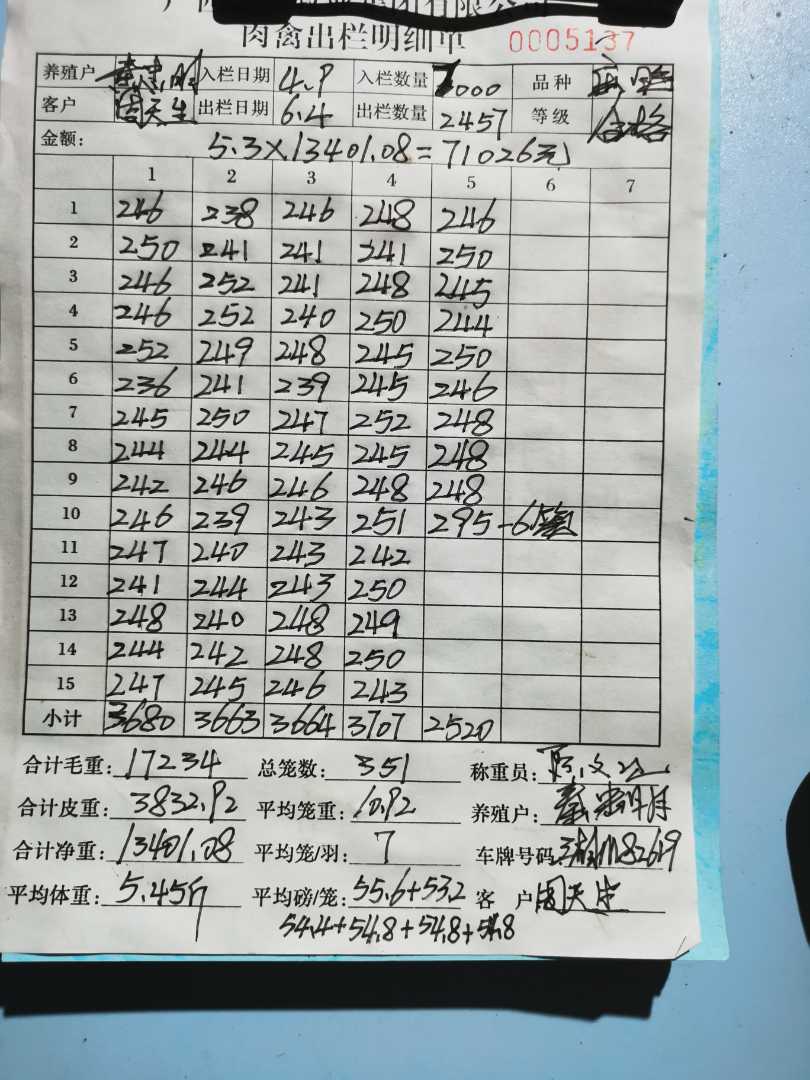 肉禽出栏明细单 0005137
养殖户 入栏日期 4.9 入栏数量 000 品种
客户 周天生 出栏日期 6.4 出栏数量 2457 等级 合格
金额: 5.3×13401.08=71026元
1 2 3 4 5 6 7
1 246 238 246 248 246
2 250 241 241 241 250
3 246 252 241 248 245
4 246 252 240 250 244
5 252 249 248 245 250
6 236 241 239 245 246
7 245 250 247 252 248
8 244 244 245 245 248
9 242 246 246 248 248
10 246 239 243 251 295
11 247 240 243 242
12 241 244 243 250
13 248 240 248 249
14 244 242 248 250
15 247 245 246 243
小计 3680 3663 3664 3707 2520
合计毛重: 17234 总笼数: 351 称重员:
合计皮重: 3832.92 平均笼重: 10.92 养殖户:
合计净重: 13401.08 平均笼/羽: 7 车牌号码
平均体重: 5.45斤 平均磅/笼: 55.6+53.2 客户 周天生
54.4+54.8+54.8+54.8